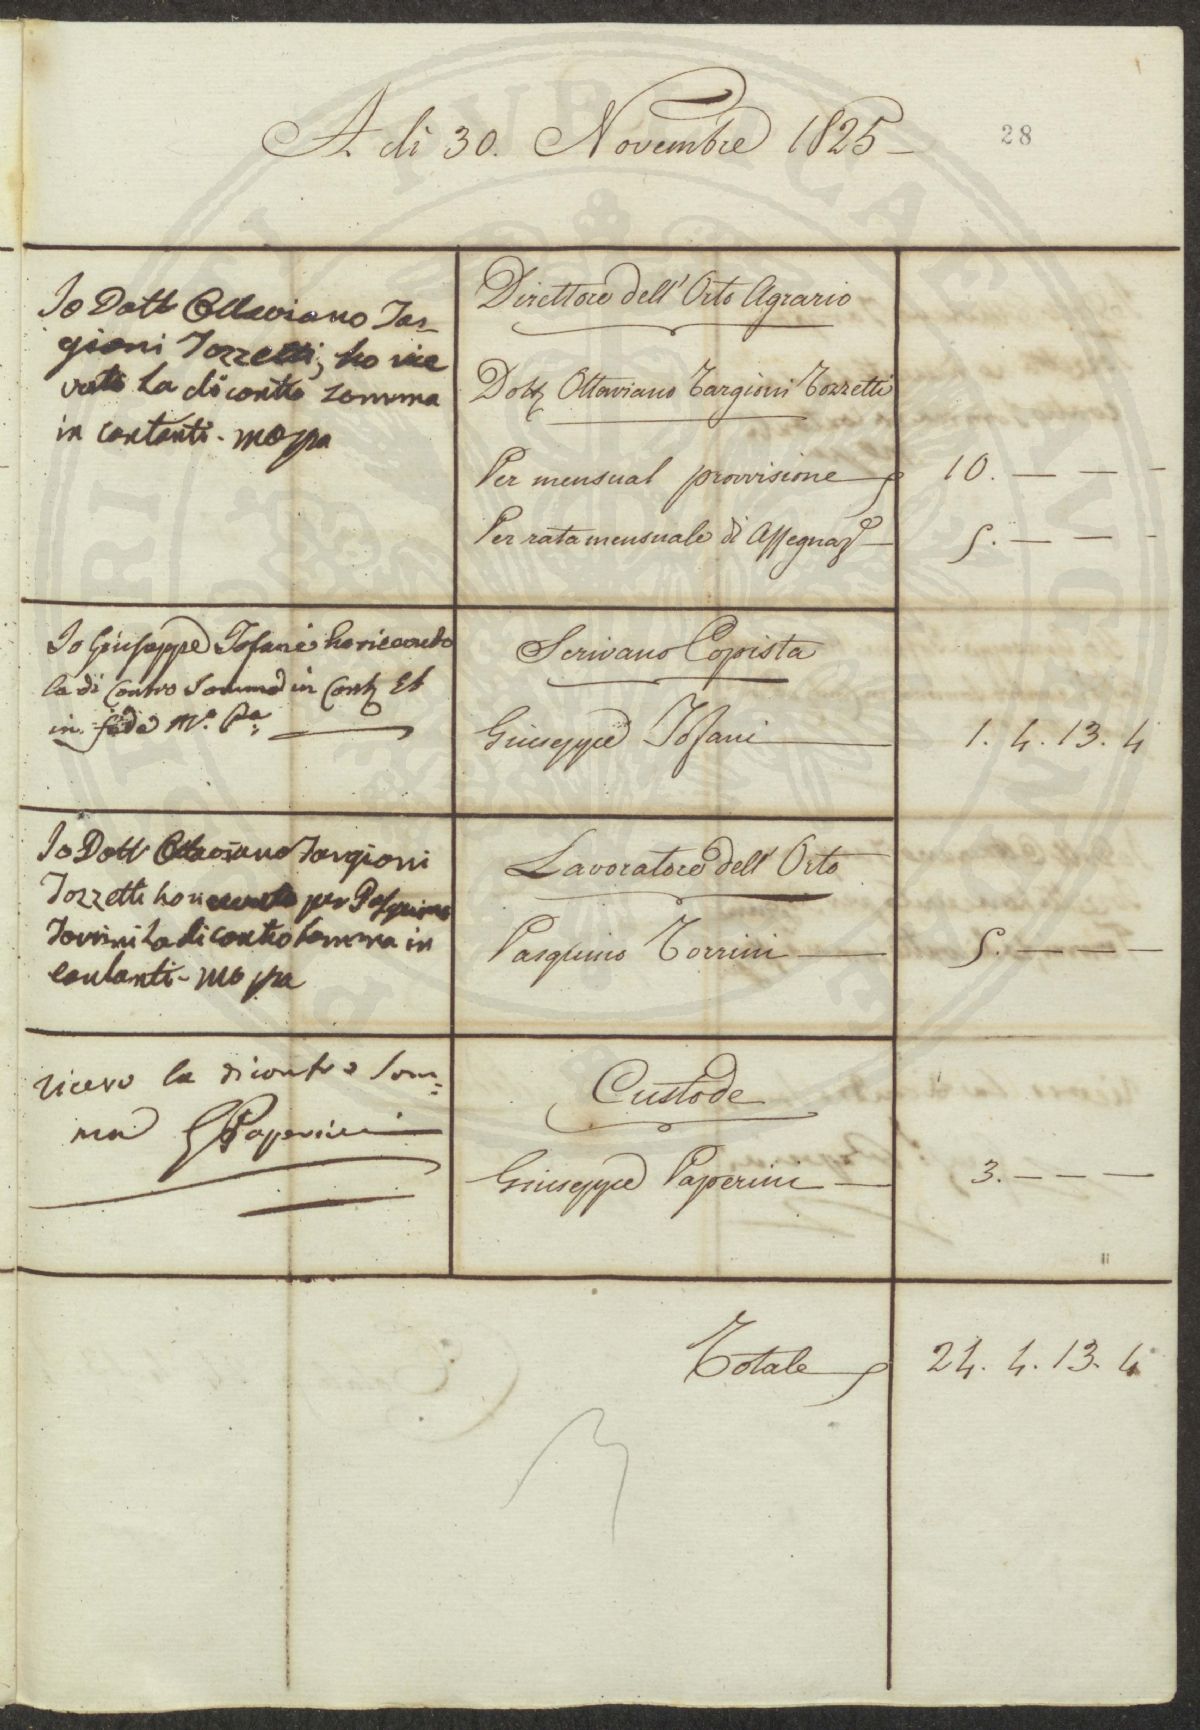 A dì 30. Novembre 1825
28
Io Dott Ottaviano Tar-
gioni Tozzetti, ho rice
vuto la di contro somma
in contanti - mo ppa
Direttore dell'Orto Agrario
Dott Ottaviano Targioni Tozzetti
Per mensual provvisione
10. — — —
Per rata mensuale di Assegnaz
5. — — —
Io Giuseppe Tofani ho ricevuto
la di Contro Somma in Cont Et
in fede Mo Pa
Scrivano Copista
Giuseppe Tofani
1. 4. 13. 4
Io Dott Ottaviano Targioni
Tozzetti ho ricevuto per Pasquino
Torrini la di contro somma in
contanti - mo ppa
Lavoratore dell'Orto
Pasquino Torrini
5. — — —
ricevo la dicontro som-
ma G Paperini
Custode
Giuseppe Paperini
3. — — —
Totale
24. 4. 13. 4